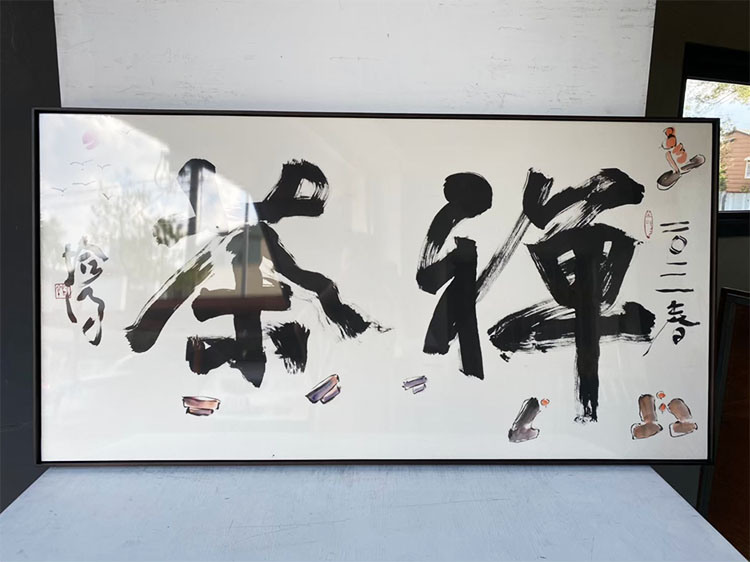 二〇二一春
禅茶
拾得